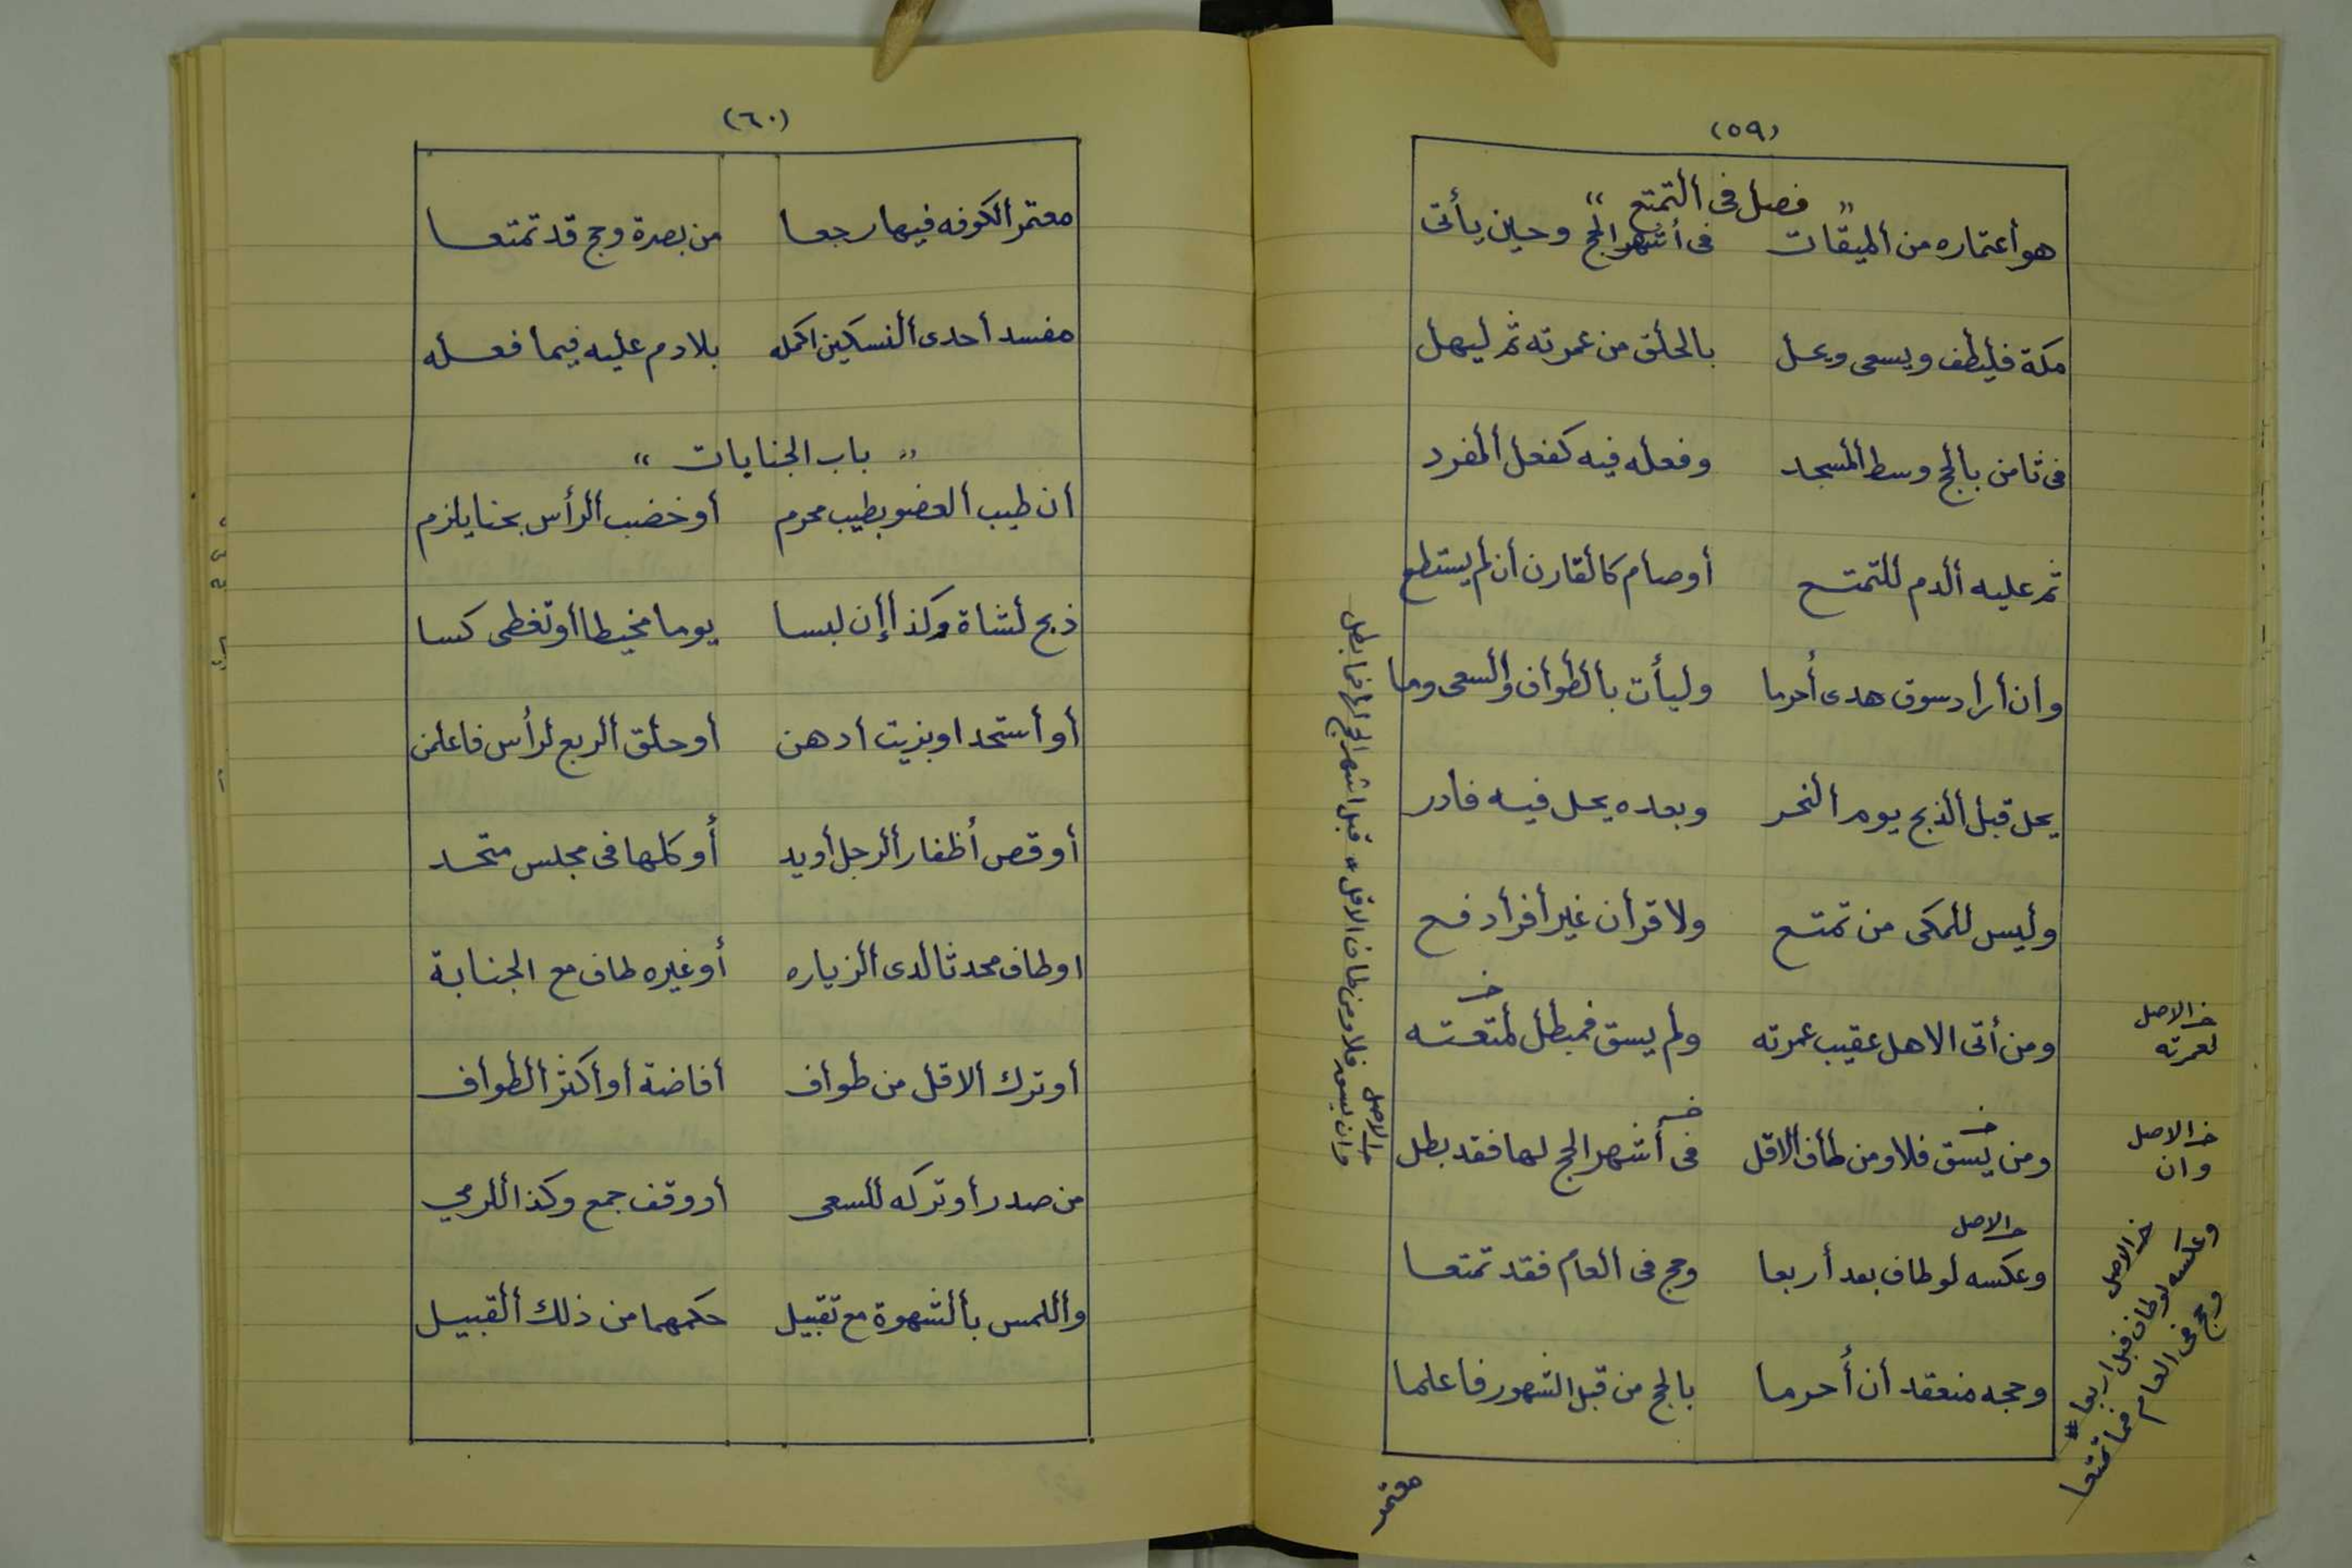 (٥٩)
" فصل فى ألتمتع "
هو أعتماره من ألميقات فى أشهر الحج وحين يأتى
مكة فليطف ويسعى ويحل بالحلق من عمرته ثم ليهل
فى ثامن بالحج وسط ألمسجد وفعله فيه كفعل ألمفرد
ثم عليه ألدم للتمتع أوصام كالقارن أن لم يستطع
وأن أراد سوق هدى أحرما وليأت بألطوأف وألسعى وما
يحل قبل ألذبح يوم ألنحر وبعده يحل فيه فادر
وليس للمكى من تمتع ولا قرأن غير أفرأد فع
ومن أتى الاهل عقيب عمرته ولم يسق فمبطل لمتعته
خـ الاصل
لعمرته
ومن يسق فلا ومن طاف ألاقل فى أشهر الحج لها فقد بطل
خـ الاصل
وان
خـ الاصل
وعكسه لو طاف بعد أربعا وحج فى ألعام فقد تمتعا
خـ الاصل
وعكسه لو طاف قبل اربعا #
وحج فى العام فما تمتعا
وحجه منعقد أن أحرما بالحج من قبل الشهور فاعلما
خـ الاصل
وان يسق فلا ومن طاف الاقل * قبل اشهر الحج لها فما بطل
معتمر
(٦٠)
معتمر ألكوفه فيها رجعا من بصرة وحج قد تمتعا
مفسد أحدى ألنسكين اكمله بلا دم عليه فيما فعله
" باب الجنايات "
أن طيب ألعضو بطيب محرم أو خضب ألرأس بحنا يلزم
ذبح لشاة وكذا إن لبسا يوما مخيطا أو تغطى كسا
أو أستحد او بزيت أدهن أو حلق ألربع لرأس فاعلمن
أو قص أظفار ألرجل أو يد أو كلها فى مجلس متحد
او طاف محدثا لدى ألزياره أو غيره طاف مع الجنابة
أو ترك ألاقل من طوأف أفاضة أو أكثر ألطوأف
من صدر أو تركه للسعى أو وقف جمع وكذا ألرمي
وأللمس بألشهوة مع تقبيل حكمهما من ذلك ألقبيل